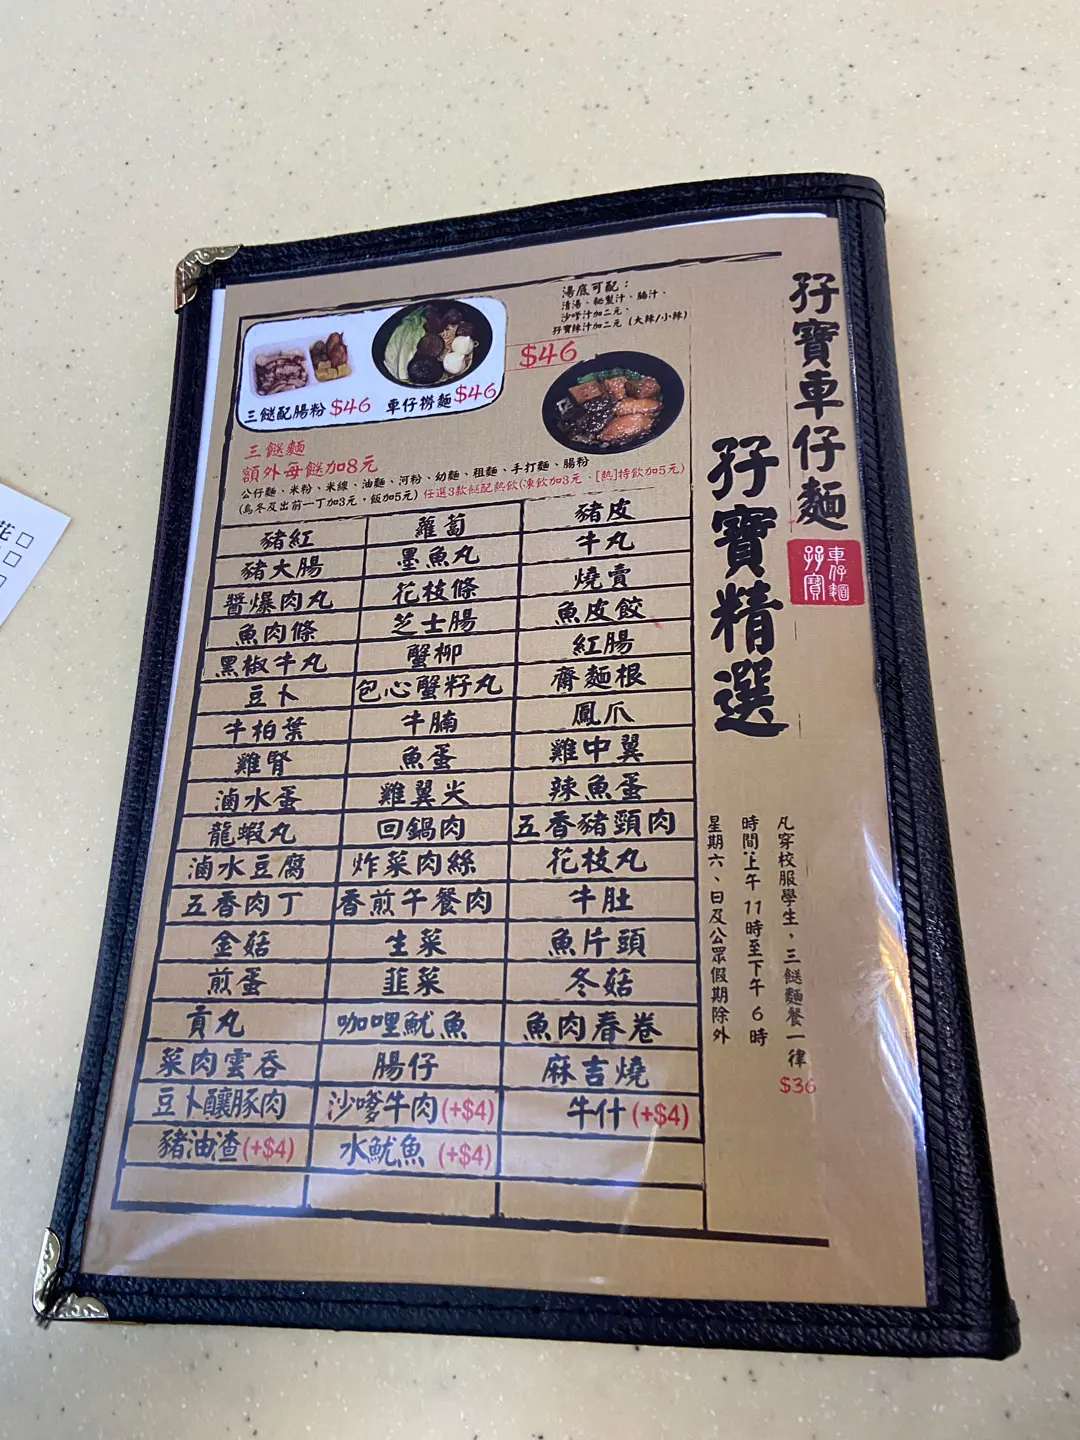 孖寶車仔麵
車仔麵
孖寶
孖寶精選
湯底可配：
清湯、秘製汁、腩汁、
沙嗲汁加二元、
孖寶辣汁加二元 (大辣/小辣)
$46
三餸配腸粉 $46 車仔撈麵 $46
三餸麵
額外每餸加8元
公仔麵、米粉、米線、油麵、河粉、幼麵、粗麵、手打麵、腸粉
(烏冬及出前一丁加3元，飯加5元) 任選3款餸配熱飲(凍飲加3元、[熱]特飲加5元)
豬紅 蘿蔔 豬皮
豬大腸 墨魚丸 牛丸
醬爆肉丸 花枝條 燒賣
魚肉條 芝士腸 魚皮餃
黑椒牛丸 蟹柳 紅腸
豆卜 包心蟹籽丸 齋麵根
牛柏葉 牛腩 鳳爪
雞腎 魚蛋 雞中翼
滷水蛋 雞翼尖 辣魚蛋
龍蝦丸 回鍋肉 五香豬頸肉
滷水豆腐 炸菜肉絲 花枝丸
五香肉丁 香煎午餐肉 牛肚
金菇 生菜 魚片頭
煎蛋 韮菜 冬菇
貢丸 咖哩魷魚 魚肉春卷
菜肉雲吞 腸仔 麻吉燒
豆卜釀豚肉 沙嗲牛肉(+$4) 牛什(+$4)
豬油渣(+$4) 水魷魚 (+$4)
凡穿校服學生，三餸麵餐一律
$36
時間：上午 11 時至下午 6 時
星期六、日及公眾假期除外